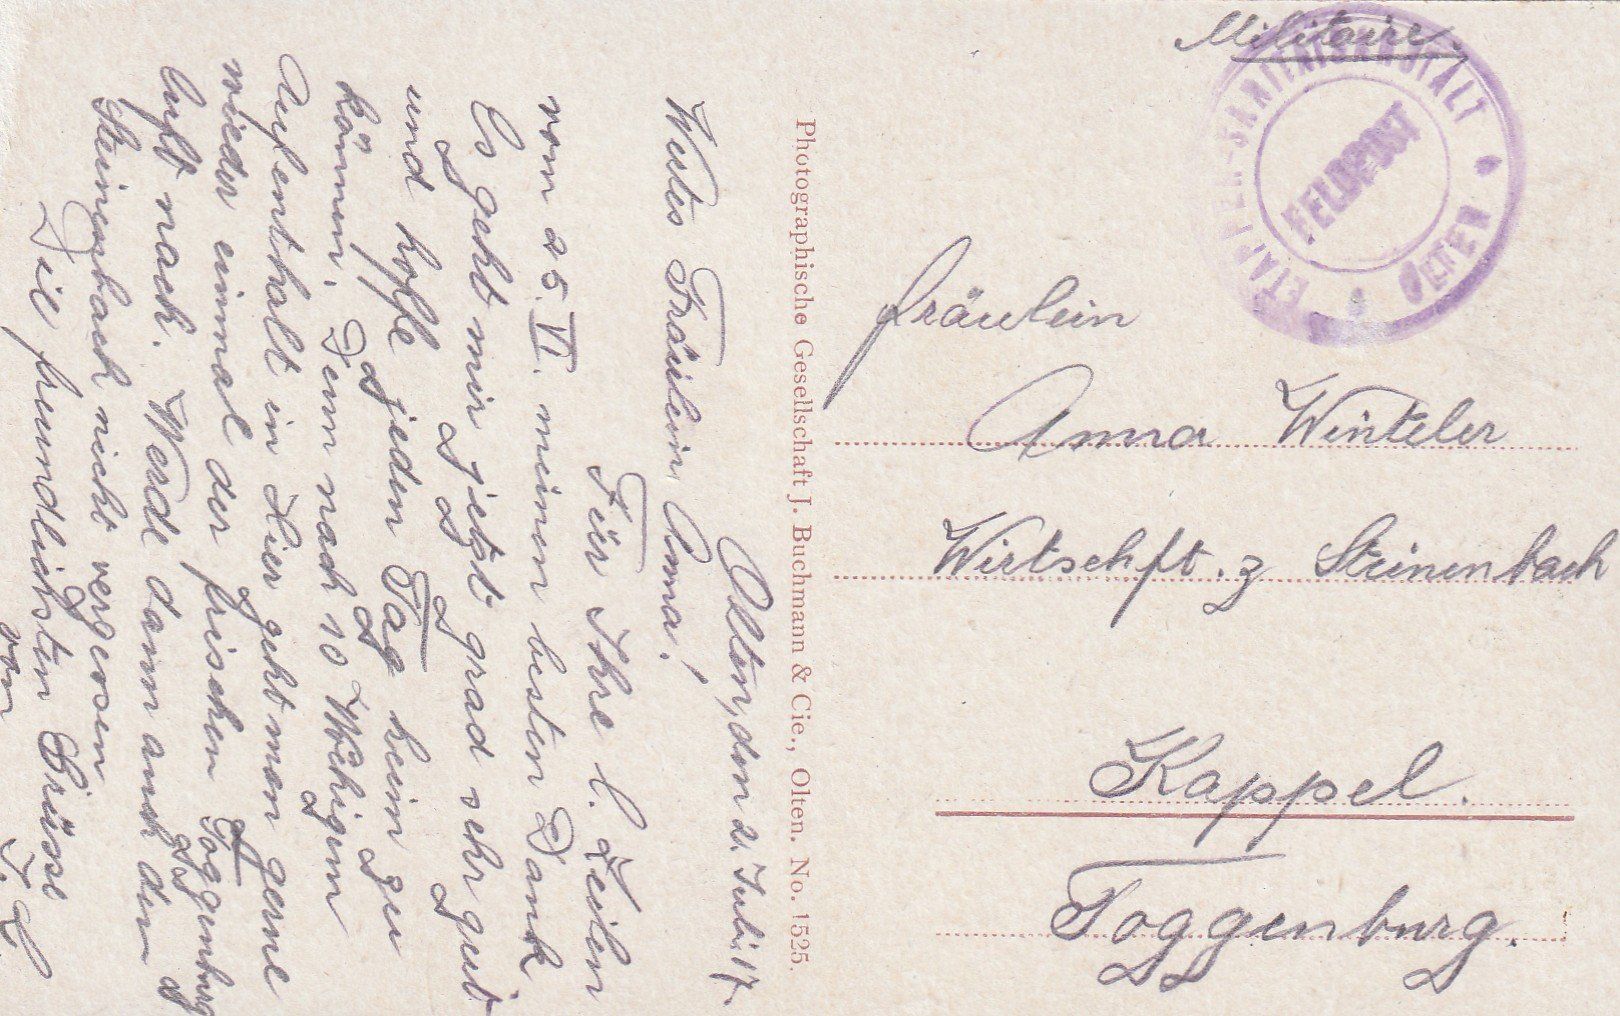 Militaire.
ETAPPEN-SANITÄTSANSTALT
FELDPOST
OLTEN
Fräulein
Anna Winteler
Wirtschft. z Steinenbach
Kappel.
Toggenburg.
Photographische Gesellschaft J. Buchmann & Cie., Olten. No. 1525.
Olten, den 2. Juli. 17.
Wertes Fräulein Anna!
Für Ihre l. Zeilen
vom 25. VI. meinen besten Dank
Es geht mir jetzt grad sehr gut
und hoffe jeden Tag heim zu
können. Denn nach 10 Wöchigem
Aufenthalt in hier geht man gerne
wieder einmal der frischen Toggenburg
luft nach. Werde dann auch den
Steinenbach nicht vergessen
Die freundlichsten Grüsse
von